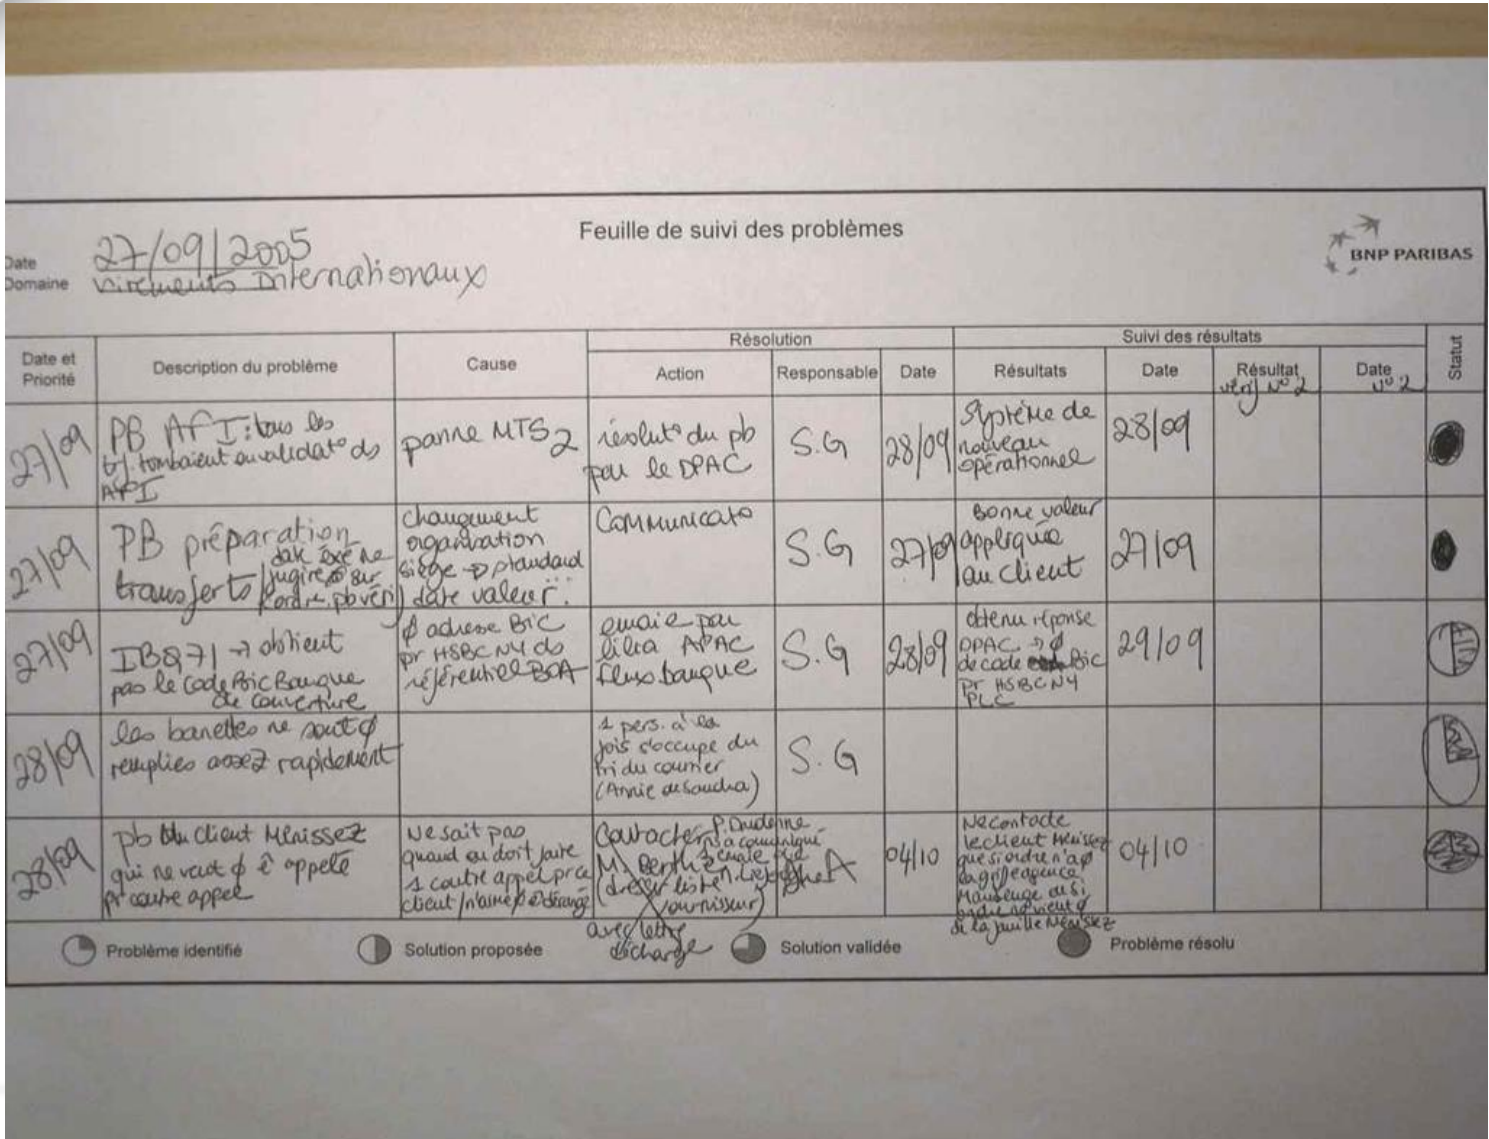 Feuille de suivi des problèmes
BNP PARIBAS
Date 27/09/2005
Domaine Virements Internationaux
Date et Priorité
Description du problème
Cause
Résolution
Action
Responsable
Date
Suivi des résultats
Résultats
Date
Résultat
vérif N° 2
Date
N° 2
Statut
27/09
PB AFI: tous les
tombaient au validat° ds
AFI
panne MTS2
résolut° du pb
par le DPAC
S.G
28/09
Système de
nouveau
opérationnel
28/09
27/09
PB préparation
transferts
date exe ne
sur
ordre, pb
Changement
organisation
siège → standard
date valeur...
Communicat°
S.G
27/09
Bonne valeur
appliquée
au client
27/09
27/09
IB871 → obtient
pas le code Bic Banque
de couverture
ϕ adresse BIC
pr HSBC NY ds
référentiel BOA
emaie par
lilia APAC
flux banque
S.G
28/09
obtenu réponse
DPAC → ϕ
de code Bic
pr HSBC NY
PLC
29/09
28/09
les banettes ne sont ϕ
remplies assez rapidement
1 pers. à la
fois s'occupe du
tri du courrier
(Annie de Saucha)
S.G
28/09
pb du client Ménissez
qui ne veut ϕ ê appelé
pr contre appel
Ne sait pas
quand on doit faire
1 contre appel pr ce
client / n'aime dérangé
Contacter
M. Berth
P. Dudenne
a communiqué
(dresser liste
fournisseur)
avec lettre
décharge
04/10
Ne contacte
le client Ménissez
que si ordre n'a ϕ
la griffe agence,
ou si
ordre ne vient ϕ
de la famille Ménissez
04/10
Problème identifié
Solution proposée
Solution validée
Problème résolu